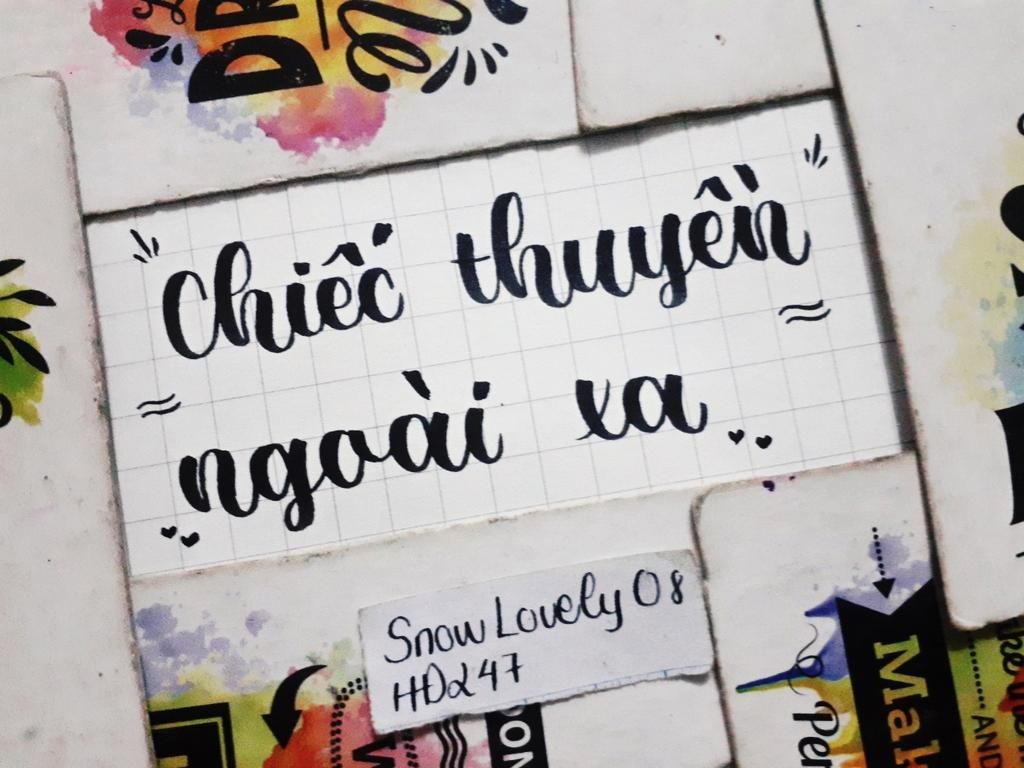 DR
Chiếc thuyền
ngoài xa
Snow Lovely 08
HDα247
Mak
Per
AND
the